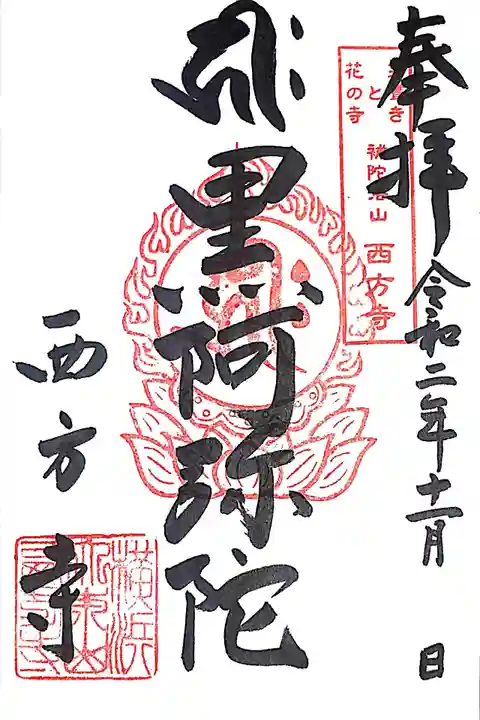 奉拝
令和二年十一月 日
茅葺き
と
花の寺
補陀洛山 西方寺
黒阿弥陀
西方寺
横浜